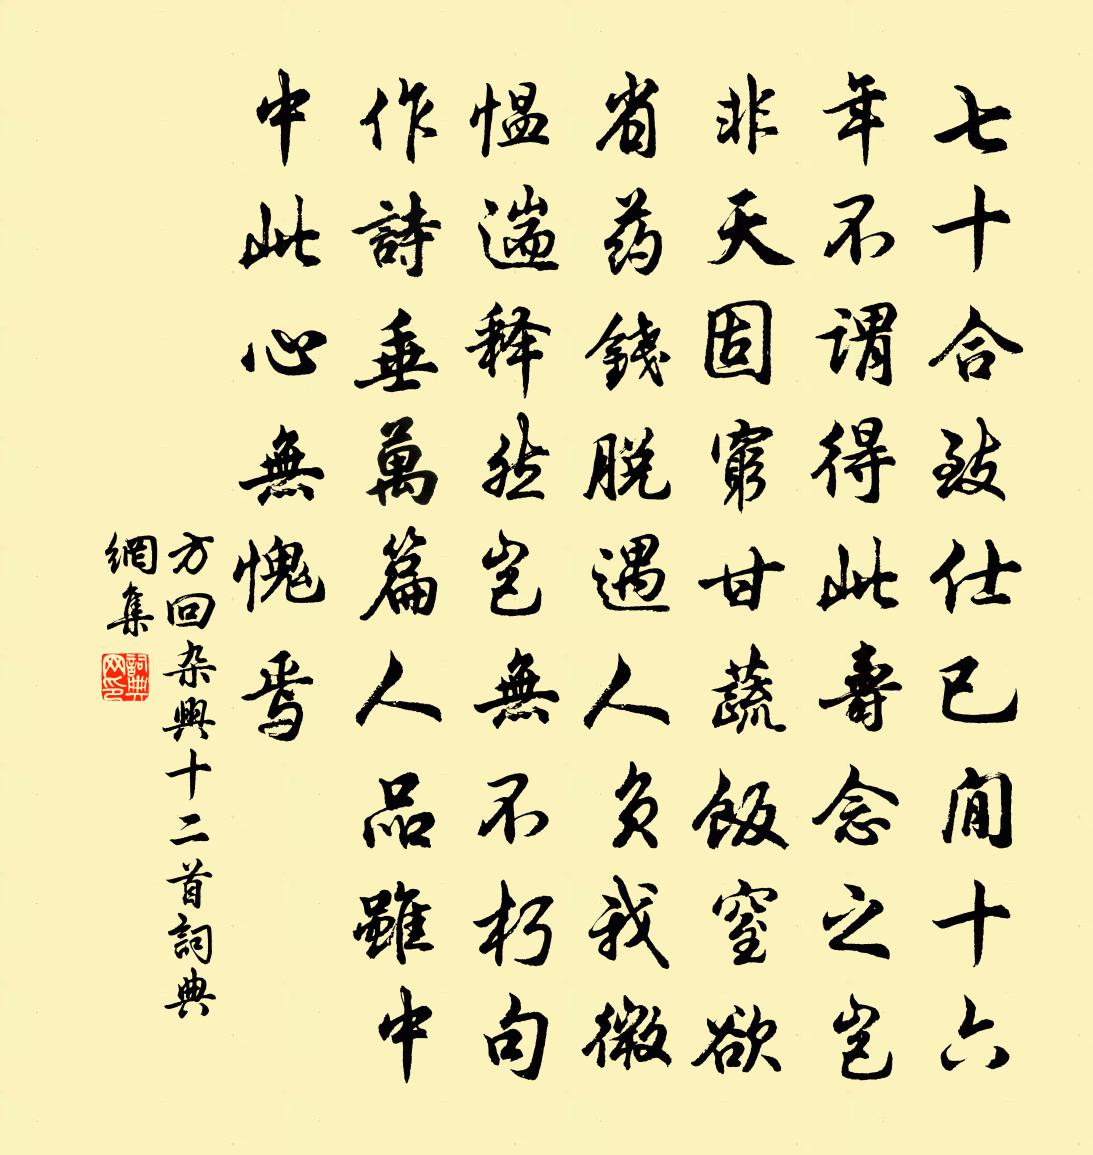 七十合致仕已閒十六
年不謂得此壽念之豈
非天固窮甘蔬飯窒欲
省药錢脱遇人负我微
愠遄释然豈無不朽句
作詩垂萬篇人品雖中
中此心無愧焉
方回杂興十二首詞典
網集
詞典
网印